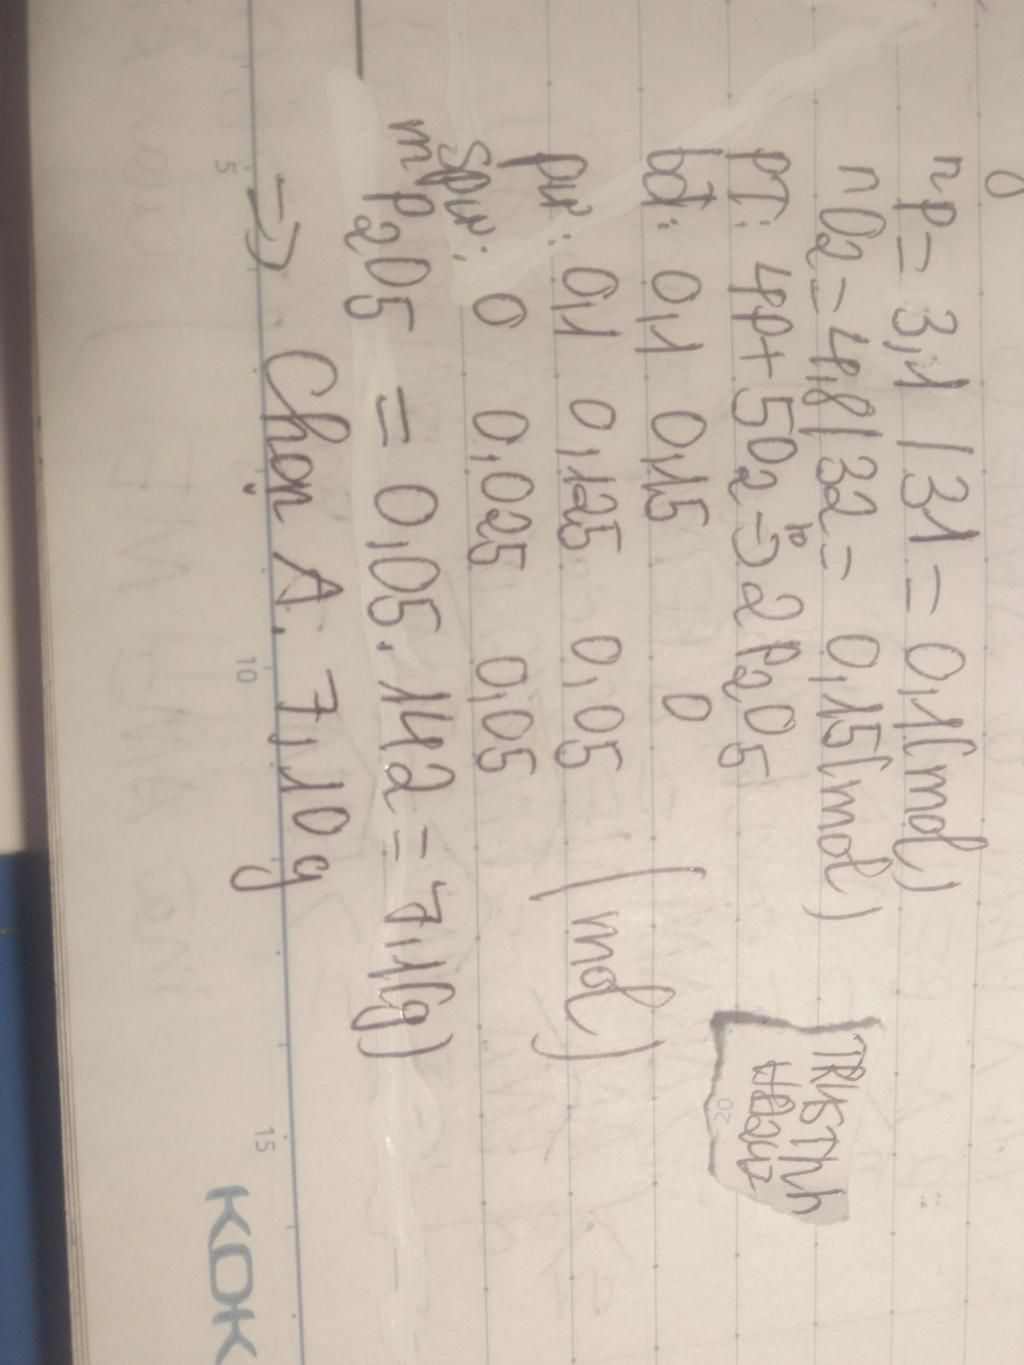 nP = 3,1 / 31 = 0,1 (mol)
nO2 = 4,8 / 32 = 0,15 (mol)
PT: 4P + 5O2 → 2P2O5
t°
bđ: 0,1 0,15 0
pư: 0,1 0,125 0,05 (mol)
spư: 0 0,025 0,05
m P2O5 = 0,05 . 142 = 7,1 (g)
→ Chọn A. 7,10 g
5
10
15
20
KOK